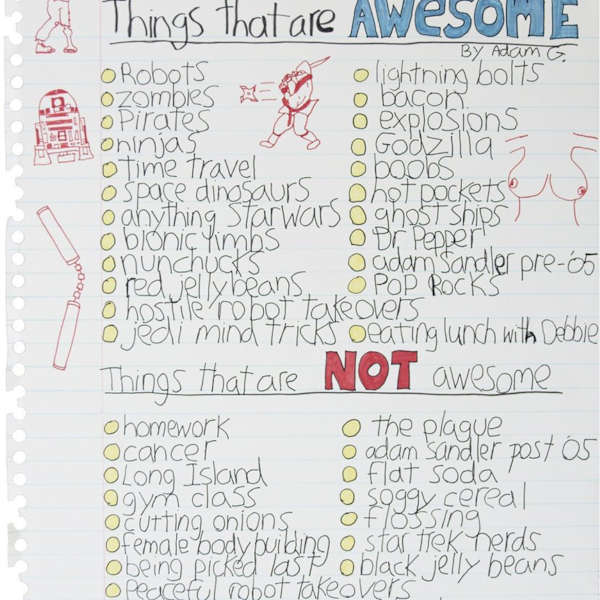 Things that are AWESOME
By Adam G.
Robots
zombies
Pirates
ninjas
time travel
space dinosaurs
anything Starwars
bionic limbs
nunchucks
red jellybeans
hostile robot takeovers
jedi mind tricks
lightning bolts
bacon
explosions
Godzilla
boobs
hot pockets
ghost ships
Dr Pepper
adam sandler pre-'05
Pop Rocks
eating lunch with Debbie
Things that are NOT awesome
homework
cancer
Long Island
gym class
cutting onions
female bodybuilding
being picked last
peaceful robot takeovers
the plague
adam sandler post '05
flat soda
soggy cereal
flossing
star trek nerds
black jelly beans